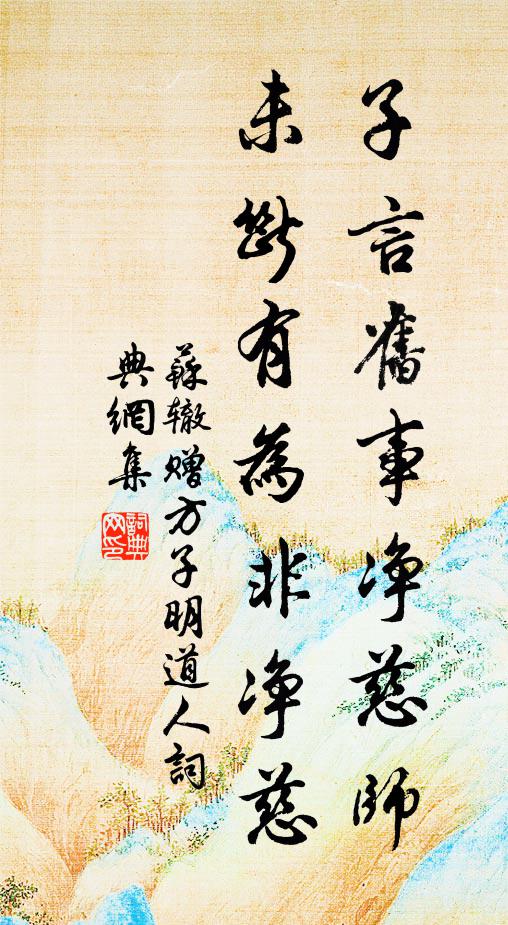 子言舊事净慈師
未斷有為非净慈
蘇辙赠方子明道人詞
典網集
詞典网印